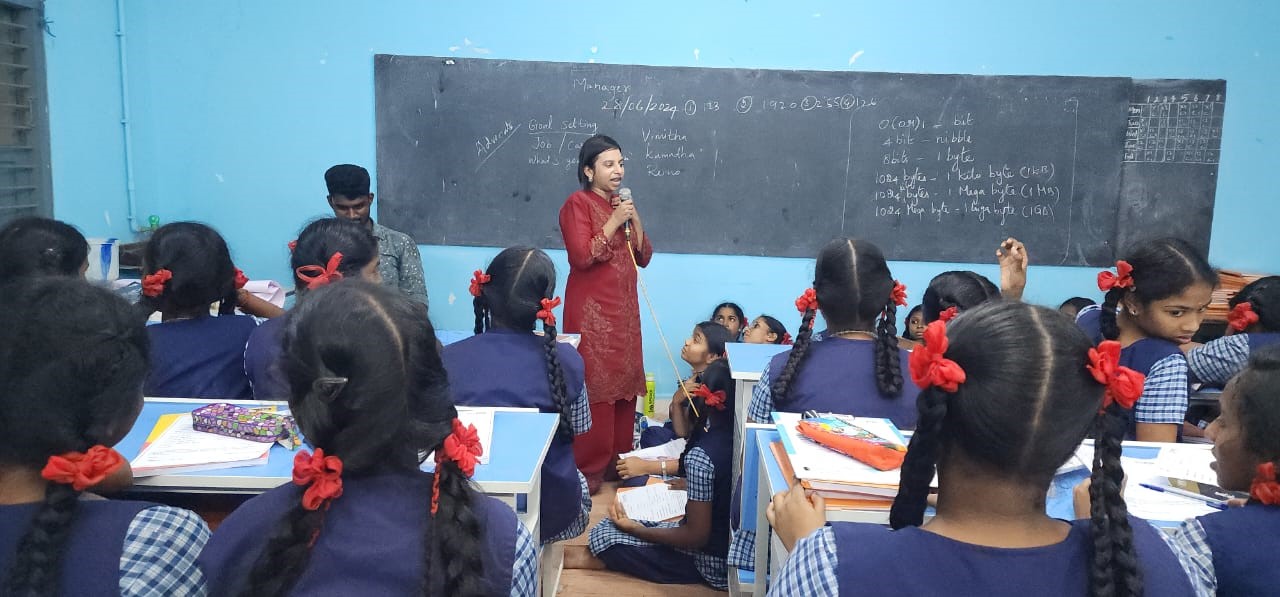 Manager
28/06/2024 ① 123 ② 1920 ③ 255 ④ 126
Advocate
Goal setting
Job / Ca
What's
Vinitha
Kamatha
0 (or) 1 = bit
4 bit - nibble
8 bits - 1 byte
1024 bytes - 1 Kilo byte (1KB)
1024 bytes - 1 Mega byte (1 MB)
1024 Mega byte - 1 Giga byte (1GB)
1 2 3 4 5 6 7 8